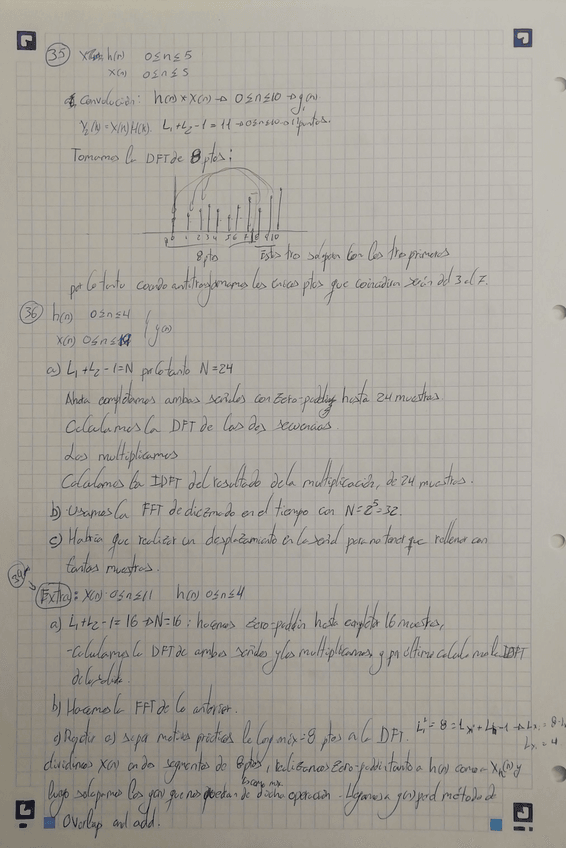 35 h(n) 0≤n≤5
x(n) 0≤n≤5
Convolución: h(n) * x(n) → 0≤n≤10 → y(n)
L₁+L₂-1=11 → 0≤n≤10 → 11 puntos.
Tomamos la DFT de 8 ptos:
0 1 2 3 4 5 6 7 8 9 10
8 pto Estos tres solapan con los tres primeros
por lo tanto cuando antitransformamos los únicos ptos que coincidirán serán del 3 al 7.
36 h(n) 0≤n≤4
x(n) 0≤n≤19 y(n)
a) L₁+L₂-1=N por lo tanto N=24
Ahora completamos ambas señales con zero-padding hasta 24 muestras.
Calculamos la DFT de las dos secuencias
Las multiplicamos
Calculamos la IDFT del resultado de la multiplicación, de 24 muestras.
b) Usamos la FFT de diezmado en el tiempo con N=2⁵=32
c) Habría que realizar un desplazamiento en la señal para no tener que rellenar con
tantas muestras.
34
Extra: x(n) 0≤n≤11 h(n) 0≤n≤4
a) L₁+L₂-1=16 → N=16: hacemos zero-paddin hasta completar 16 muestras,
-Calculamos la DFT de ambas señales y las multiplicamos, y por último calculamos la IDFT
de la salida.
b) Hacemos la FFT de lo anterior.
c) motivos prácticos le log máx=8 ptos a la DFT.
dividimos x(n) en dos segmentos de 8 ptos, realizamos zero-paddin tanto a h(n) como a y
luego solapamos los y(n) que nos de dicha operación. Llegamos a y(n) por el método de
Overlap and add.